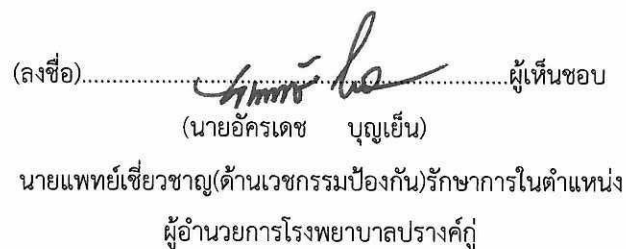 (ลงชื่อ)........................................................ผู้เห็นชอบ
(นายอัครเดช บุญเย็น)
นายแพทย์เชี่ยวชาญ(ด้านเวชกรรมป้องกัน)รักษาการในตำแหน่ง
ผู้อำนวยการโรงพยาบาลปรางค์กู่